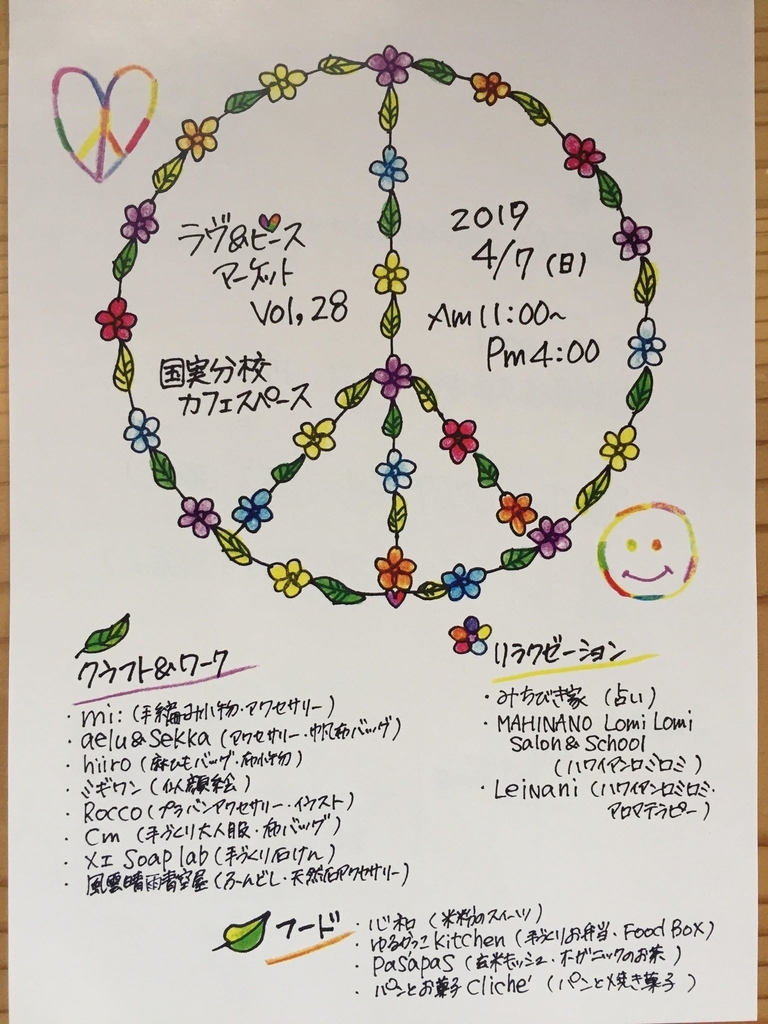 ラヴ&ピース
マーケット
Vol,28
国実分校
カフェスペース
2019
4/7(日)
Am11:00~
Pm4:00
クラフト&ワーク
・mi:(手編み小物・アクセサリー)
・aelu&Sekka(アクセサリー・帆布バッグ)
・hiiro(麻ひもバッグ・布小物)
・ミギワン(似顔絵)
・Rocco(プラバンアクセサリー・イラスト)
・Cm(手づくり大人服・布バッグ)
・XI Soap lab(手づくり石けん)
・風雲晴雨青空屋(ふーんどし・天然石アクセサリー)
リラクゼーション
・みちびき家(占い)
・MAHINANO Lomi Lomi
Salon&School
(ハワイアンロミロミ)
・LeiNani(ハワイアンロミロミ・
アロマテラピー)
フード
・心和(米粉のスイーツ)
・ゆるかっこKitchen(手づくりお弁当・Food Box)
・Pas'apas(玄米キッシュ・オーガニックのお茶)
・パンとお菓子Cliche'(パンと焼き菓子)